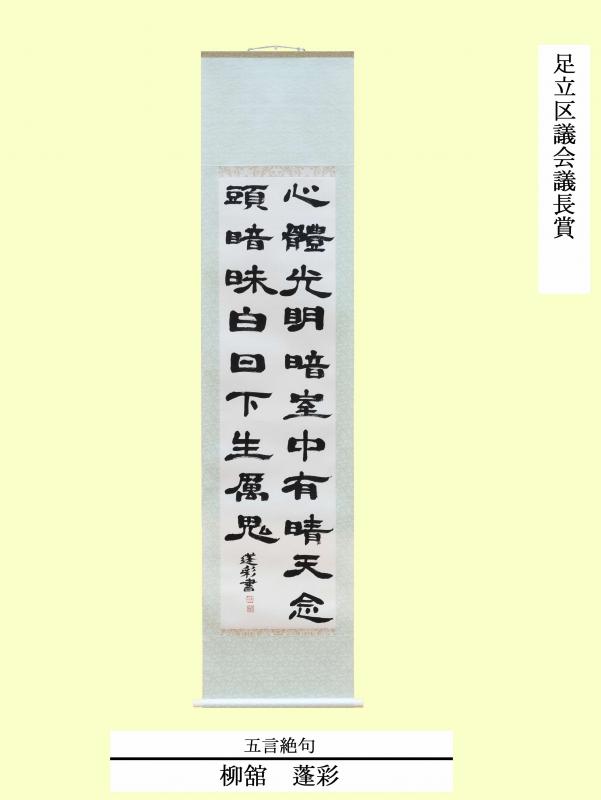 足立区議会議長賞
心體光明暗室中有晴天念
頭暗昧白日下生厲鬼
蓬彩書
五言絶句
柳舘 蓬彩